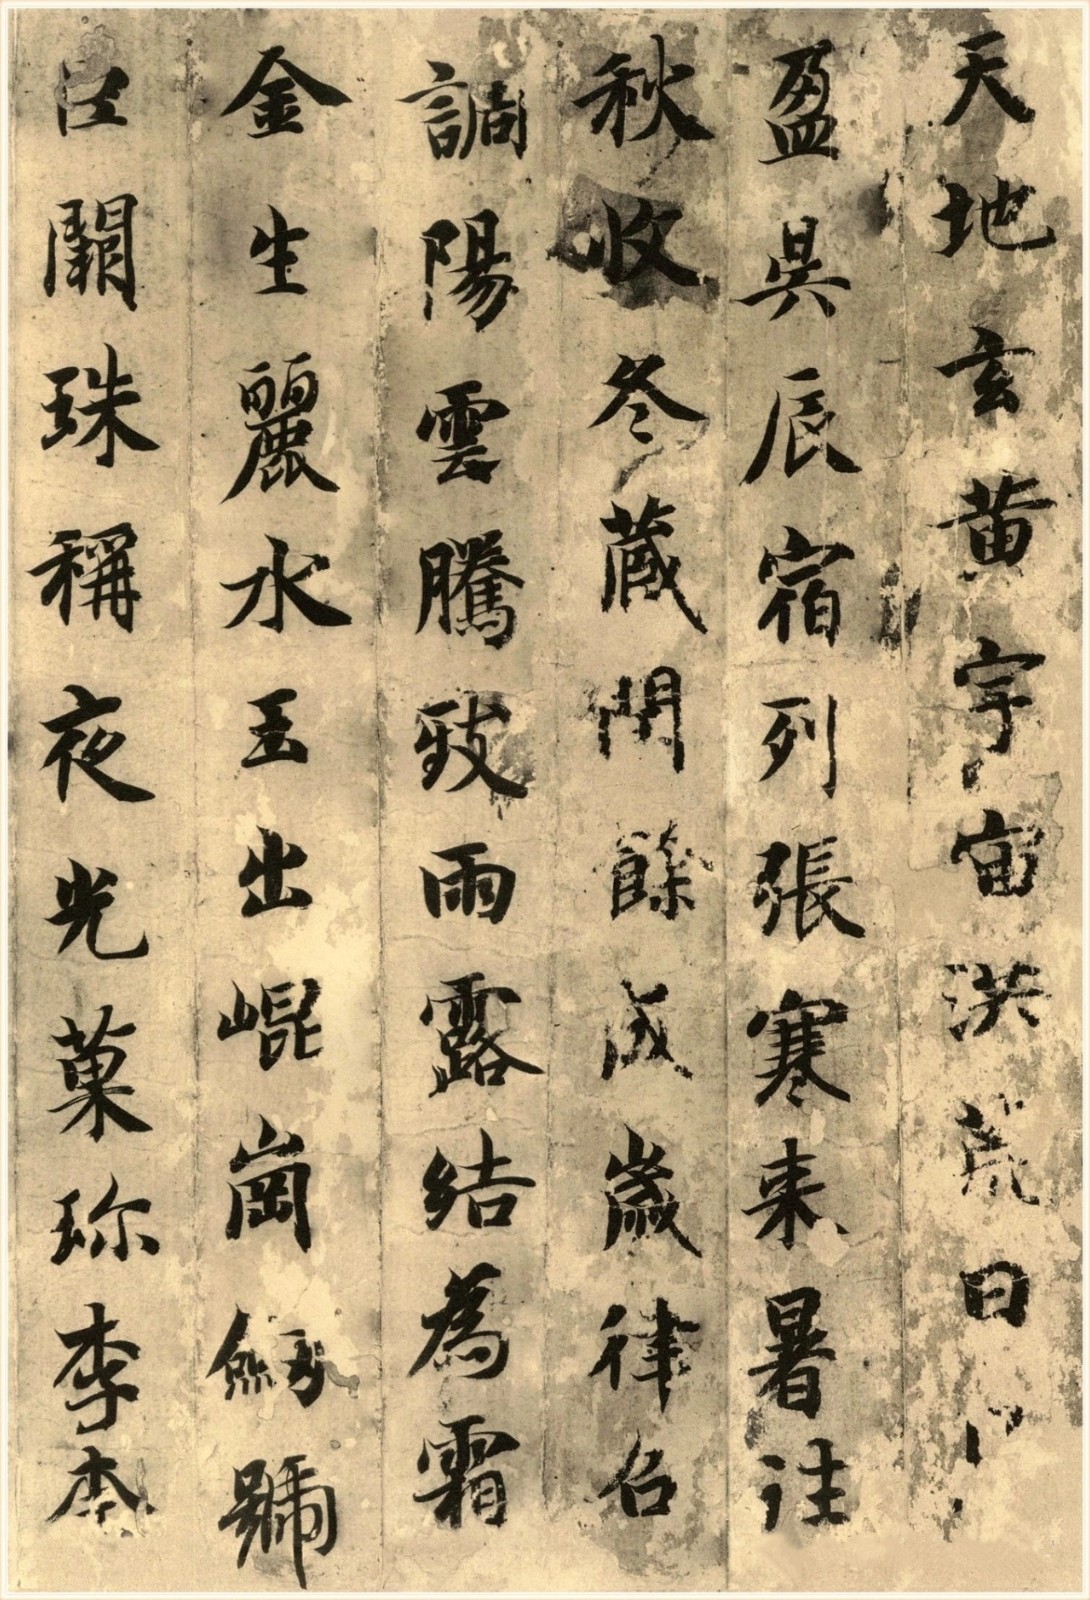 天地玄黄宇宙洪荒日
盈昃辰宿列張寒来暑往
秋收冬蔵閏餘成歲律召
調陽雲騰致雨露結為霜
金生麗水玉出崐崗劔號
巨闕珠稱夜光菓珎李柰